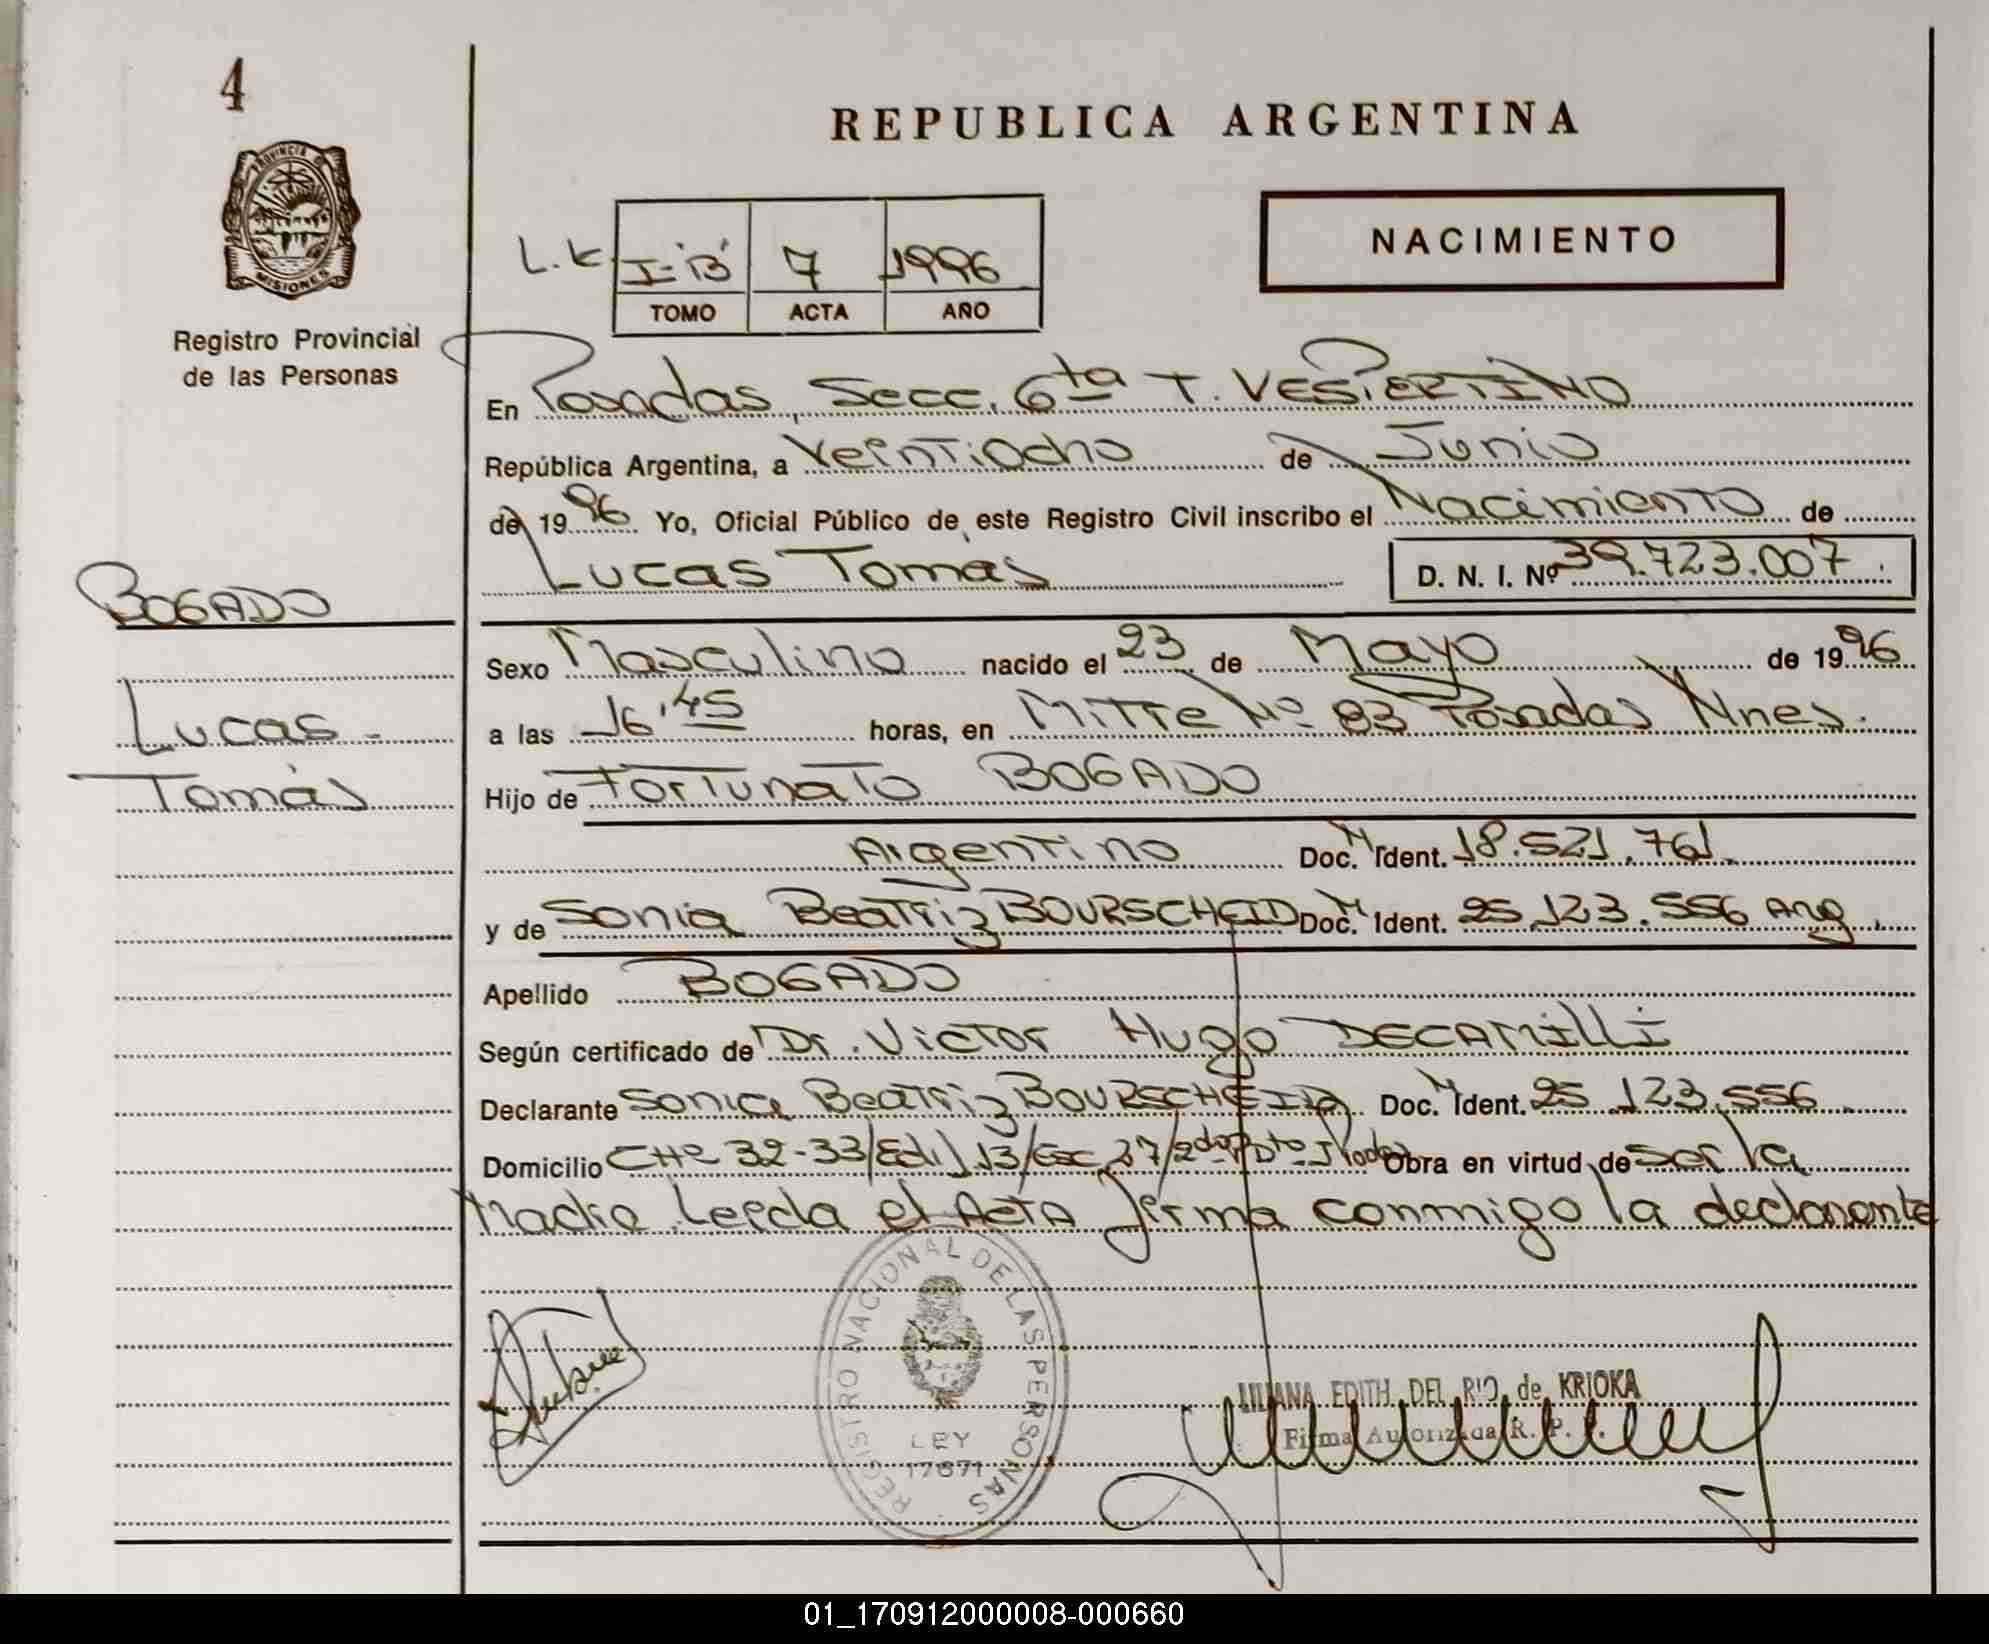 4
REPUBLICA ARGENTINA
PROVINCIA DE MISIONES
Registro Provincial
de las Personas
L.K I-"B" 7 1996
TOMO ACTA AÑO
NACIMIENTO
En Posadas, Secc. 6ta T. VESPERTINO
República Argentina, a Veintiocho de Junio
de 1996 Yo, Oficial Público de este Registro Civil inscribo el Nacimiento de
Lucas Tomás D. N. I. Nº 39.723.007.
BOGADO
Lucas-
Tomás
Sexo Masculino nacido el 23 de Mayo de 1996
a las 16'45 horas, en Mitre Nº 83 Posadas Mnes.
Hijo de Fortunato BOGADO
Argentino Doc. M Ident. 18.521.761.
y de Sonia Beatriz BOURSCHEID Doc. M Ident. 25.123.556 Arg.
Apellido BOGADO
Según certificado de Dr. Victor Hugo DECAMILLI
Declarante Sonia Beatriz BOURSCHEID Doc. M Ident. 25.123.556
Domicilio CHª 32-33/Edi. 13/Esc 27/2do P Dto J Obra en virtud de Ser la
Madre. Leída el Acta firma conmigo la declarante
REGISTRO NACIONAL DE LAS PERSONAS
LEY
17671
LILIANA EDITH DEL RIO de KRIOKA
Firma Autorizada R. P.
01_170912000008-000660